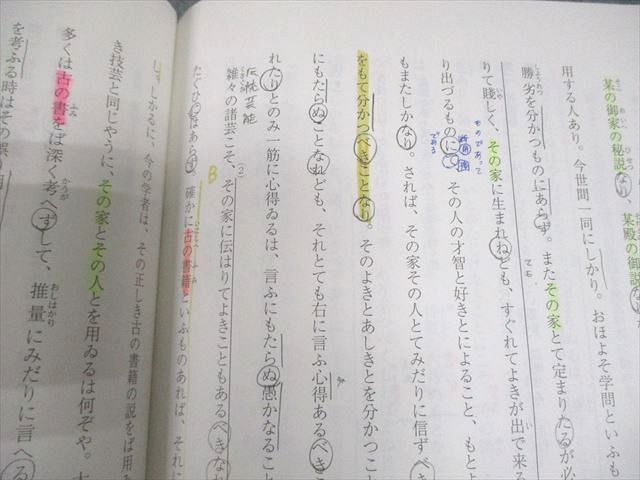 某の御家の秘説なり、某殿の御説
用する人あり。今世間一同にしかり。おほよそ学問といふも
勝劣を分かつものにあらず。またその家とて定まりたるが必
りて賤しく、その家に生まれねども、すぐれてよきが出で来る
り出づるものにて、その人の才智と好きとによること、もとよ
もまたしかなり。されば、その家その人とてみだりに信ずべき
をもて分かつべきことなり。そのよきとあしきとを分かつこ
にもたらぬことなれども、それとても右に言ふ心得あるべきこ
れたりとのみ一筋に心得ゐるは、言ふにもたらぬ愚かなること
雑々の諸芸こそ、その家に伝はりてよきこともあるべきな
たぐひにはあらず、確かに古の書籍といふものあれば、それに
しかるに、今の学者は、その正しき古の書籍の説をば用
き技芸と同じやうに、その家とその人とを用ゐるは何ぞや。
多くは古の書をば深く考へずして、推量にみだりに言へる
を考ふる時はその誤り明